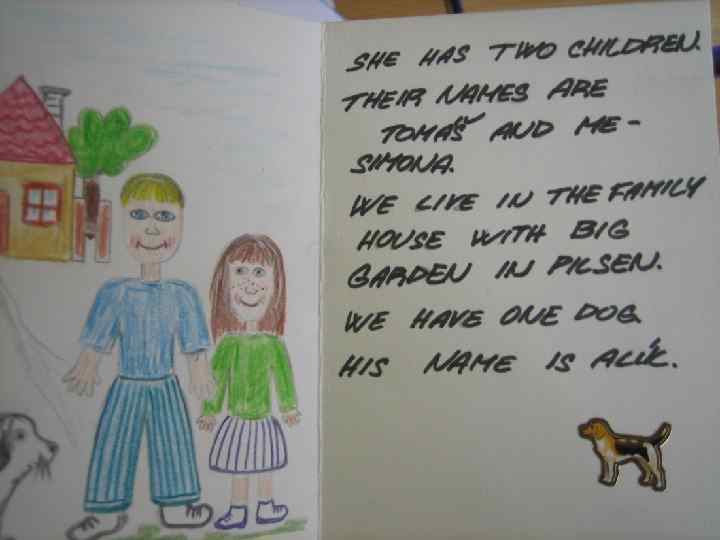 SHE HAS TWO CHILDREN.
THEIR NAMES ARE
TOMÁŠ AND ME -
SIMONA.
WE LIVE IN THE FAMILY
HOUSE WITH BIG
GARDEN IN PILSEN.
WE HAVE ONE DOG
HIS NAME IS ALÍK.